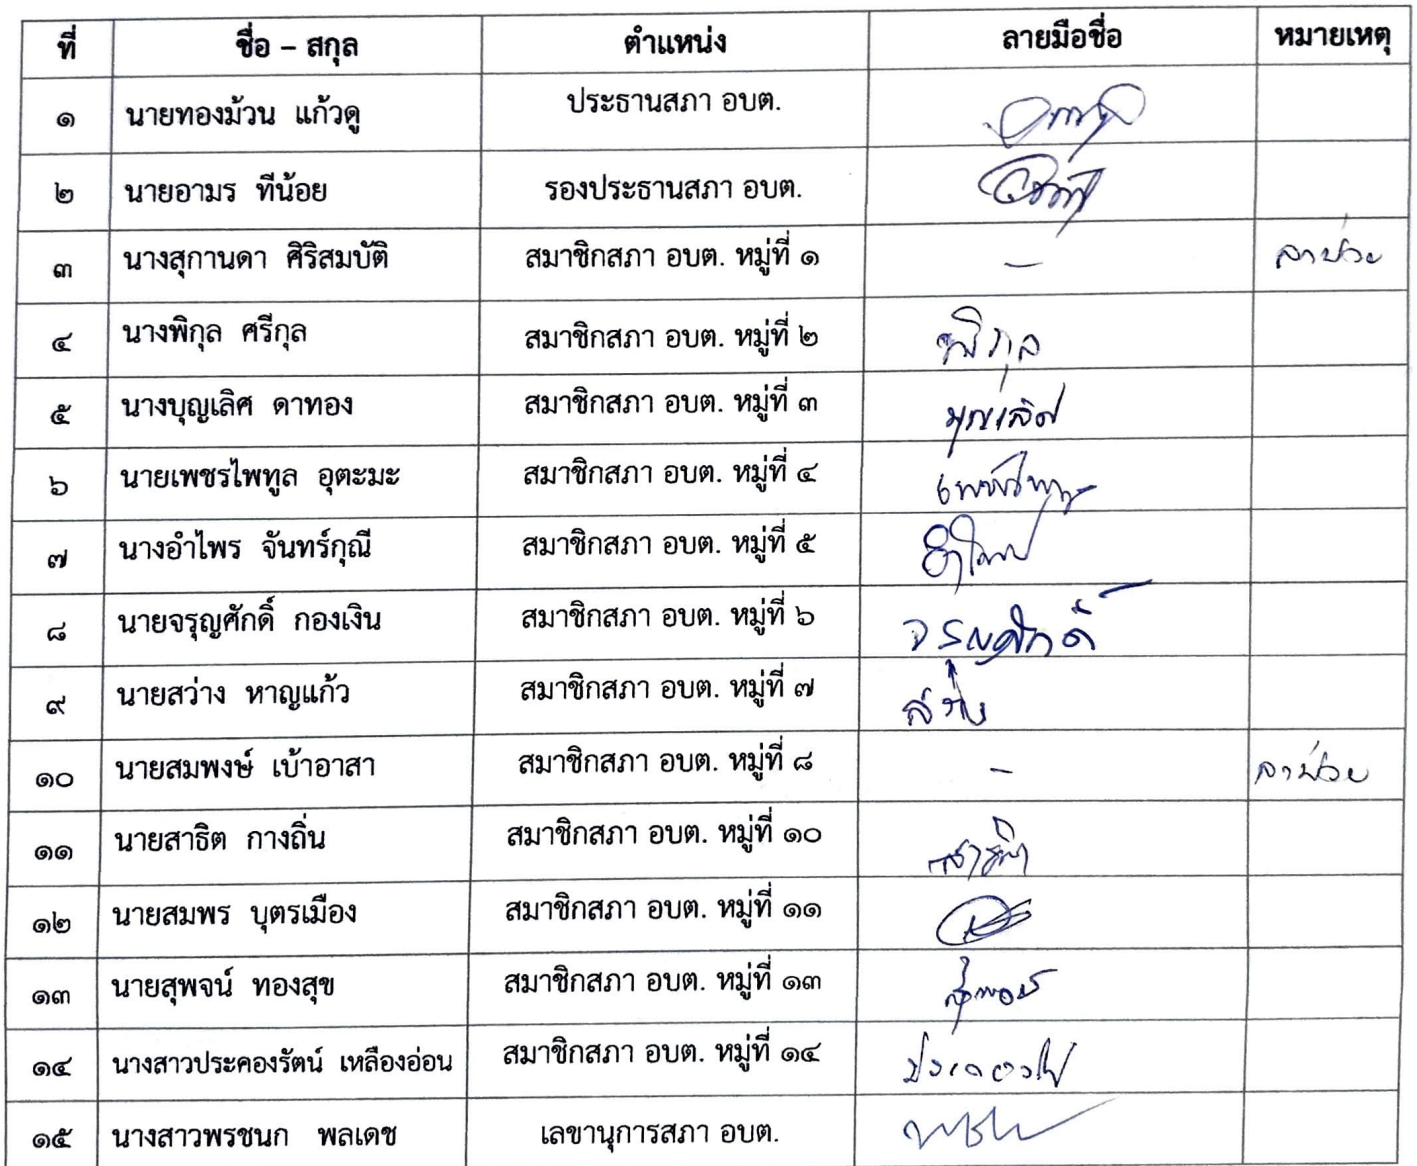 ที่ ชื่อ – สกุล ตำแหน่ง ลายมือชื่อ หมายเหตุ
๑ นายทองม้วน แก้วดู ประธานสภา อบต.
๒ นายอามร ทีน้อย รองประธานสภา อบต.
๓ นางสุกานดา ศิริสมบัติ สมาชิกสภา อบต. หมู่ที่ ๑ – ลาป่วย
๔ นางพิกุล ศรีกุล สมาชิกสภา อบต. หมู่ที่ ๒ พิกุล
๕ นางบุญเลิศ ดาทอง สมาชิกสภา อบต. หมู่ที่ ๓ บุญเลิศ
๖ นายเพชรไพทูล อุตะมะ สมาชิกสภา อบต. หมู่ที่ ๔
๗ นางอำไพร จันทร์กุณี สมาชิกสภา อบต. หมู่ที่ ๕ อำไพร
๘ นายจรุญศักดิ์ กองเงิน สมาชิกสภา อบต. หมู่ที่ ๖ จรุญศักดิ์
๙ นายสว่าง หาญแก้ว สมาชิกสภา อบต. หมู่ที่ ๗ สว่าง
๑๐ นายสมพงษ์ เบ้าอาสา สมาชิกสภา อบต. หมู่ที่ ๘ – ลาป่วย
๑๑ นายสาธิต กางถิ่น สมาชิกสภา อบต. หมู่ที่ ๑๐ สาธิต
๑๒ นายสมพร บุตรเมือง สมาชิกสภา อบต. หมู่ที่ ๑๑
๑๓ นายสุพจน์ ทองสุข สมาชิกสภา อบต. หมู่ที่ ๑๓ สุพจน์
๑๔ นางสาวประคองรัตน์ เหลืองอ่อน สมาชิกสภา อบต. หมู่ที่ ๑๔
๑๕ นางสาวพรชนก พลเดช เลขานุการสภา อบต.